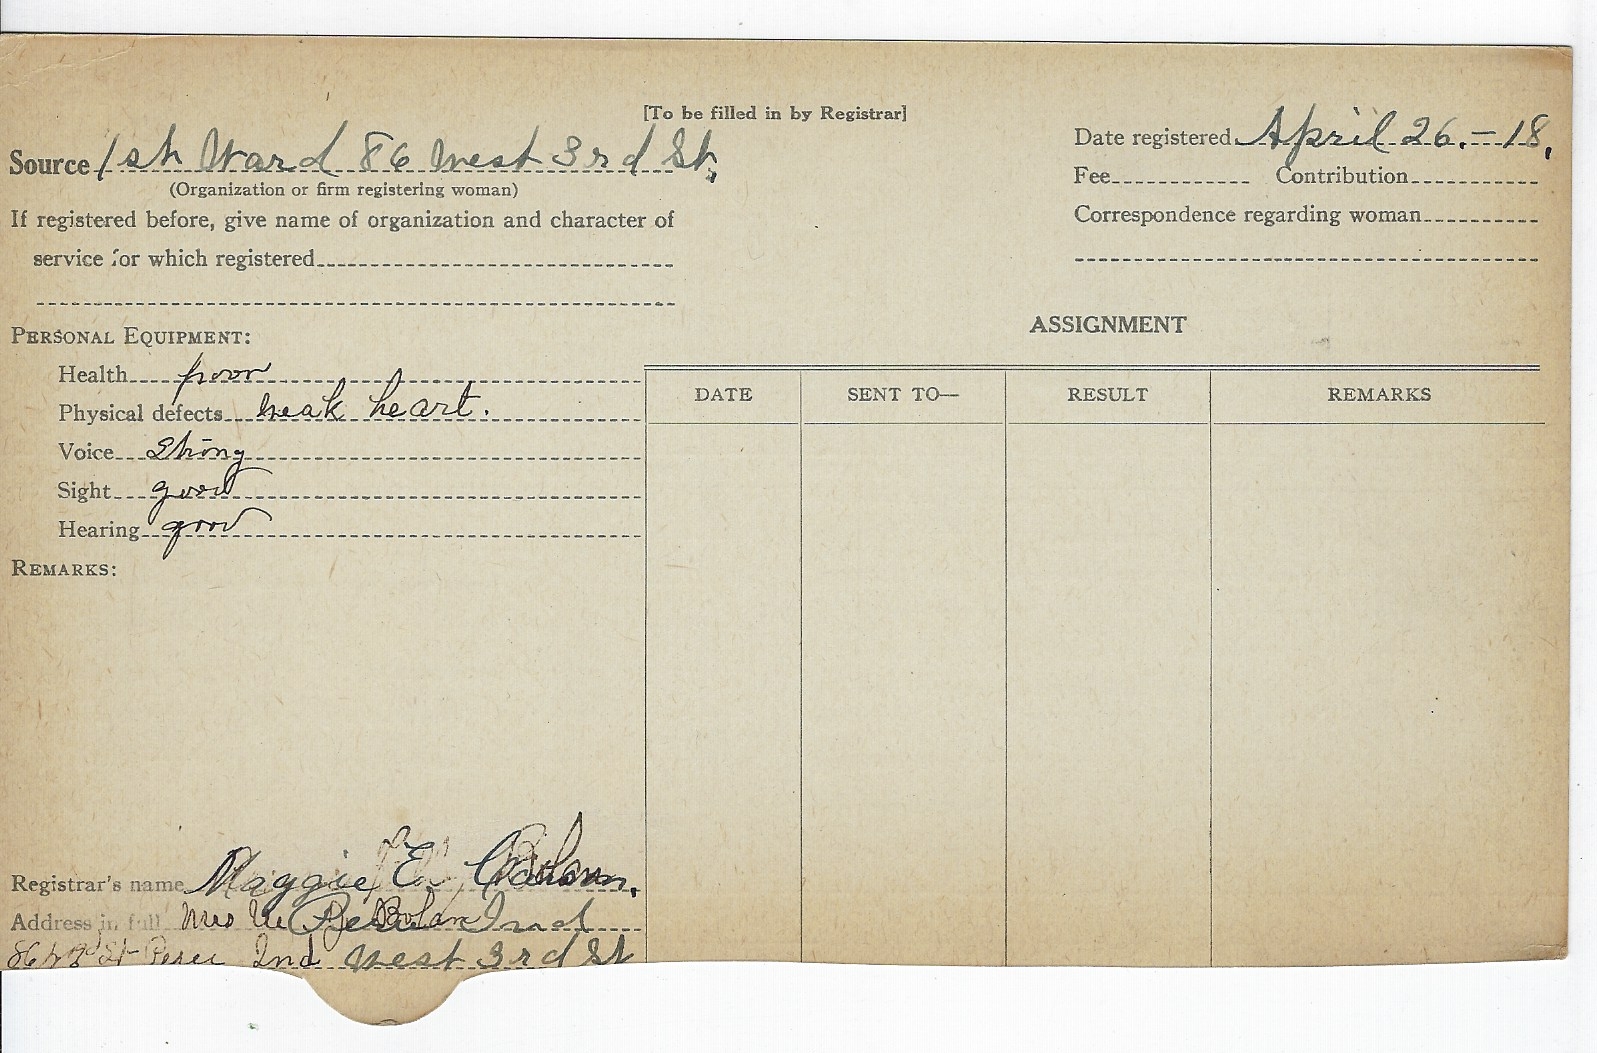 [To be filled in by Registrar]
Source 1st Ward 86 West 3rd St,
(Organization or firm registering woman)
If registered before, give name of organization and character of
service for which registered
Date registered April 26.-18.
Fee Contribution
Correspondence regarding woman
PERSONAL EQUIPMENT:
Health poor
Physical defects weak heart.
Voice Strong
Sight good
Hearing good
REMARKS:
ASSIGNMENT
DATE SENT TO— RESULT REMARKS
Registrar's name Maggie E.
Address in full Mrs Bolan Peru Ind
86 St Peru Ind West 3rd St